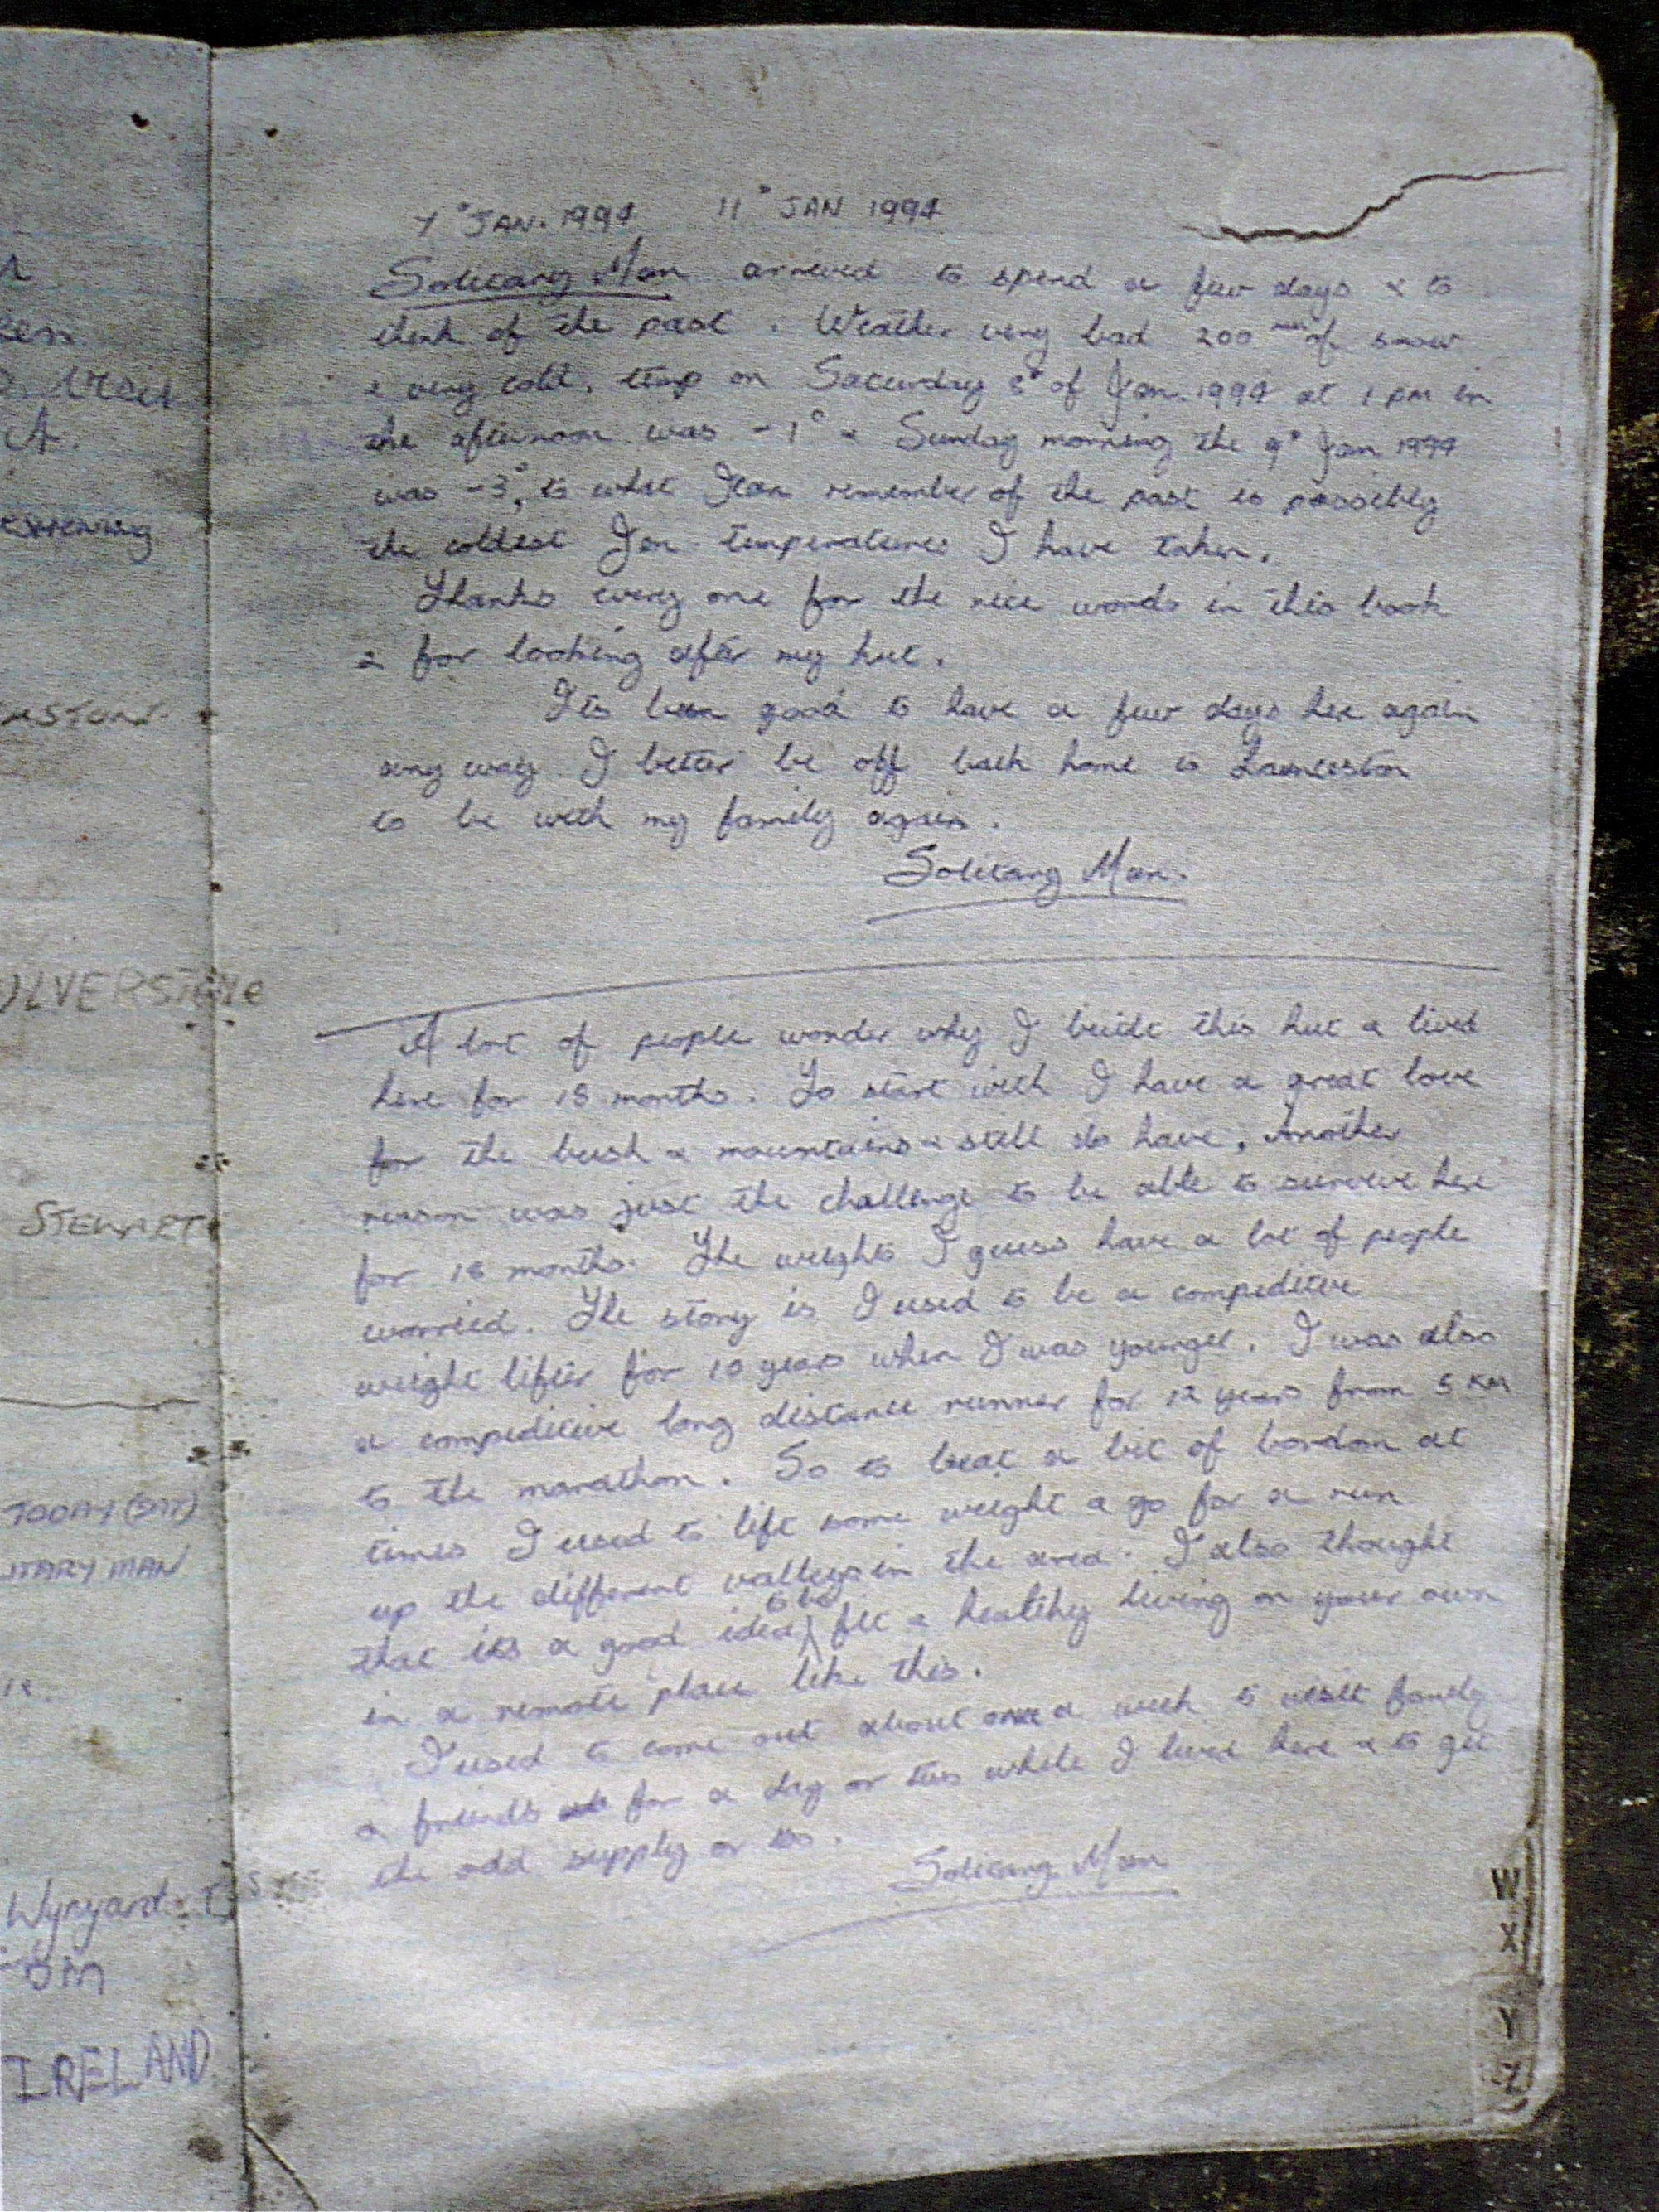 ken
A.
OLVERSTONE
STEWART
TODAY (SAT)
ITARY MAN
Wynyard. TAS
IRELAND
7° JAN. 1994 11° JAN 1994
Solitary Man arrived to spend a few days & to
think of the past. Weather very bad 200 mm of snow
& very cold, temp on Saturday 8° of Jan. 1994 at 1 PM in
the afternoon was -1° & Sunday morning the 9° Jan 1994
was -3°, to what I can remember of the past is possibly
the coldest Jan temperatures I have taken.
Thanks every one for the nice words in this book
& for looking after my hut.
Its been good to have a few days here again
any way I better be off back home to Launceston
to be with my family again.
Solitary Man.
A lot of people wonder why I built this hut & lived
here for 18 months. To start with I have a great love
for the bush & mountains & still do have, Another
reason was just the challenge to be able to survive here
for 18 months. The weights I guess have a lot of people
worried. The story is I used to be a compeditive
weight lifter for 10 years when I was younger. I was also
a compeditive long distance runner for 12 years from 5 KM
to the marathon. So to beat a bit of bordom at
times I used to lift some weight & go for a run
up the different valleys in the area. I also thought
that its a good idea to be fit & healthy living on your own
in a remote place like this.
I used to come out about once a week to visit family
& friends for a day or two while I lived here & to get
the odd supply or to.
Solitary Man
W
X
Y
Z